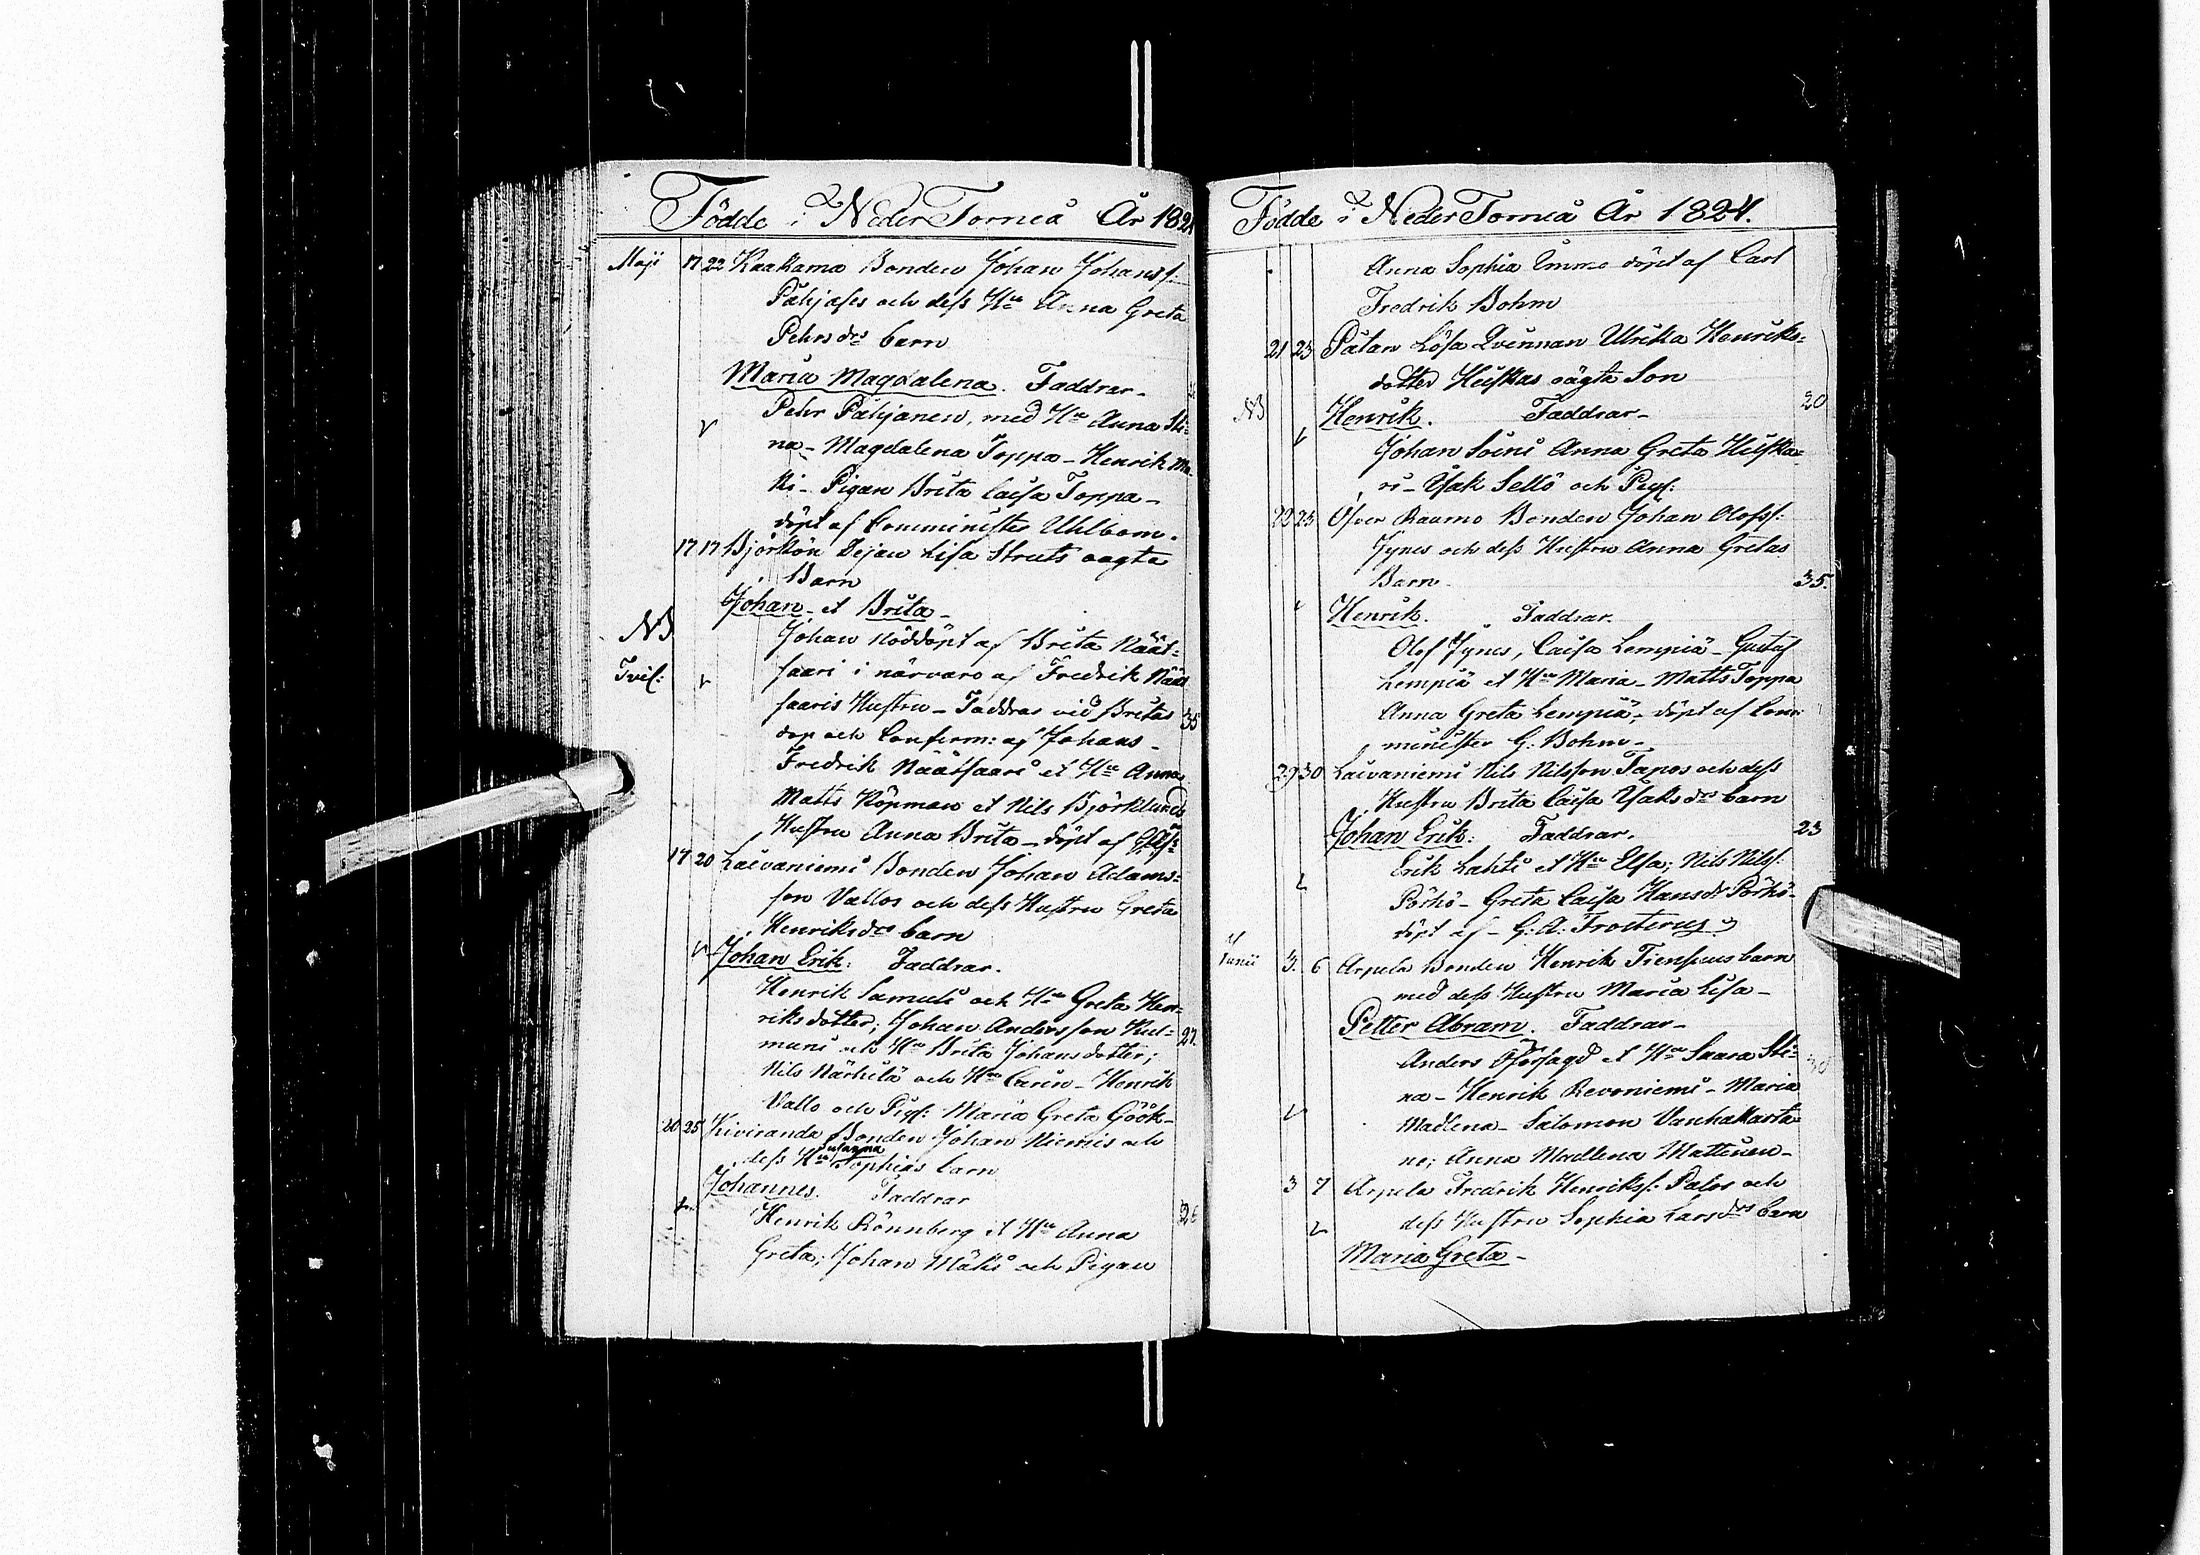 Födde i Neder Torneå År 182
Maji 17 22 Kaakama Bonden Johan Johanss:
Pahjases och dess Hu Anna Greta
Pehrsdrs barn
Maria Magdalena. Faddrar-
Pehr Pahjanen, med Hu Anna Sti-
na- Magdalena Toppa- Henrik Mä-
ki- Pigan Brita Caisa Toppa-
döpt af Comminister Uhlbom.
17 17 Björkön Dejan Lisa Struts oägta
Barn
Johan et Brita-
NB Johan nöddöpt af Brita Näät-
Tvil: saari i närvaro af Fredrik Näät
saaris Hustru- Faddrar vid Britas 35
dop och Confirm: af Johans-
Fredrik Näätsaari et Hu Anna,
Matts Köpman et Nils Björklunds
Hustru Anna Brita- döpt af
17 20 Laivaniemi Bonden Johan Adams-
son Vallos och dess Hustru Greta
Henriksdrs barn
Johan Erik: Faddrar.
Henrik Samuli och Hu Greta Hen-
riksdotter; Johan Andersson Kul- 27.
muni och Hu Brita Johansdotter;
Nils Närhilä och Hu Carin- Henrik
Vallo och Pig: Maria Greta Göök-
20 25 Kiviranda Bonden Johan Niemis och
Susanna
dess Hu Sophias barn
Johannes. Faddrar
Henrik Rönnberg et Hu Anna 26
Greta; Johan Mäki och Pigan
Födde i Neder Torneå År 1824.
Anna Sophia Emme döpt af Carl
Fredrik Bohm
21 23 Pälan Lösa Qvinnan Ulrika Henriks-
dotter Huskas oägta Son
NB Henrik. Faddrar- 20
Johan Soini Anna Greta Huska-
ri- Isak Sellö och Pig:
22 23 Öfver Raumo Bonden Johan Olofss:
Jynes och dess Hustru Anna Gretas
Barn 35.
Henrik. Faddrar.
Olof Jynes, Caisa Lempiä- Gustaf
Lempiä et Hu Maria- Matts Toppa
Anna Greta Lempiä- döpt af Com-
minister G: Bohm-
29 30 Laivaniemi Nils Nilsson Tapos och dess
Hustru Brita Caisa Isaksdrs barn
Johan Erik: Faddrar. 23
Erik Lahti et Hu Elsa; Nils Nilss:
Pörhö- Greta Caisa Hansdr Pörhö-
döpt af- G: A: Frosterus
Junii 3. 6 Arpela Bonden Henrik Tiensuus barn
med dess Hustru Maria Lisa-
Petter Abram. Faddrar-
Anders et Hu Saara Sti- 30
na- Henrik Revoniemi- Maria
Madlena- Salomon Vanhakarta-
no; Anna Madlena Mattinen-
3 7 Arpela Fredrik Henrikss: Palos och
dess Hustru Sophia Larsdrs barn
Maria Greta-